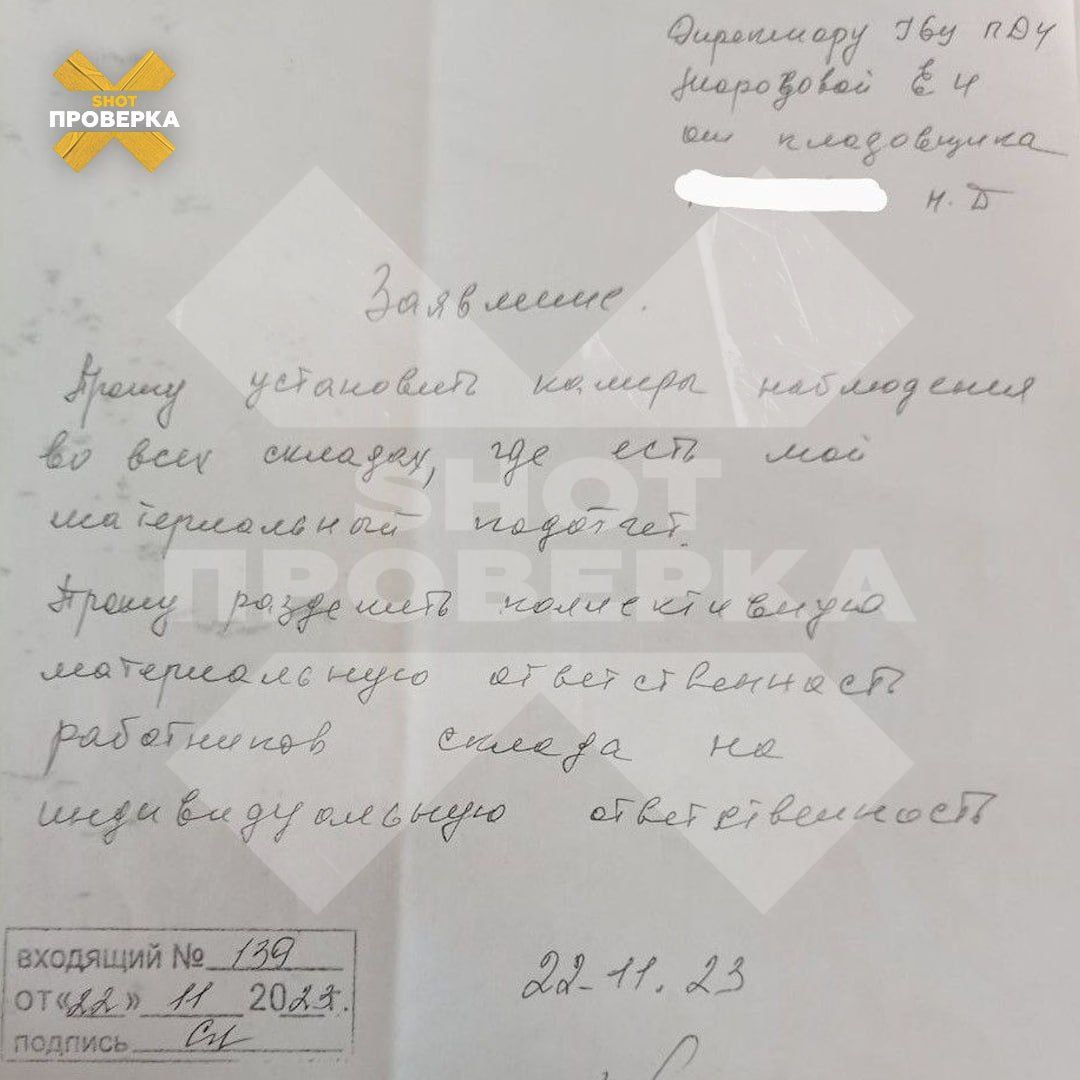 SHOT
ПРОВЕРКА
Директору ГБУ ПДУ
Морозовой Е Ч
от кладовщика
Н. Б
Заявление.
Прошу установить камеры наблюдения
во всех складах, где есть мой
материальный подотчет.
Прошу разделить коллективную
материальную ответственность
работников склада на
индивидуальную ответственность
SHOT
ПРОВЕРКА
входящий № 139
от «22» 11 2023г.
подпись
22-11.23